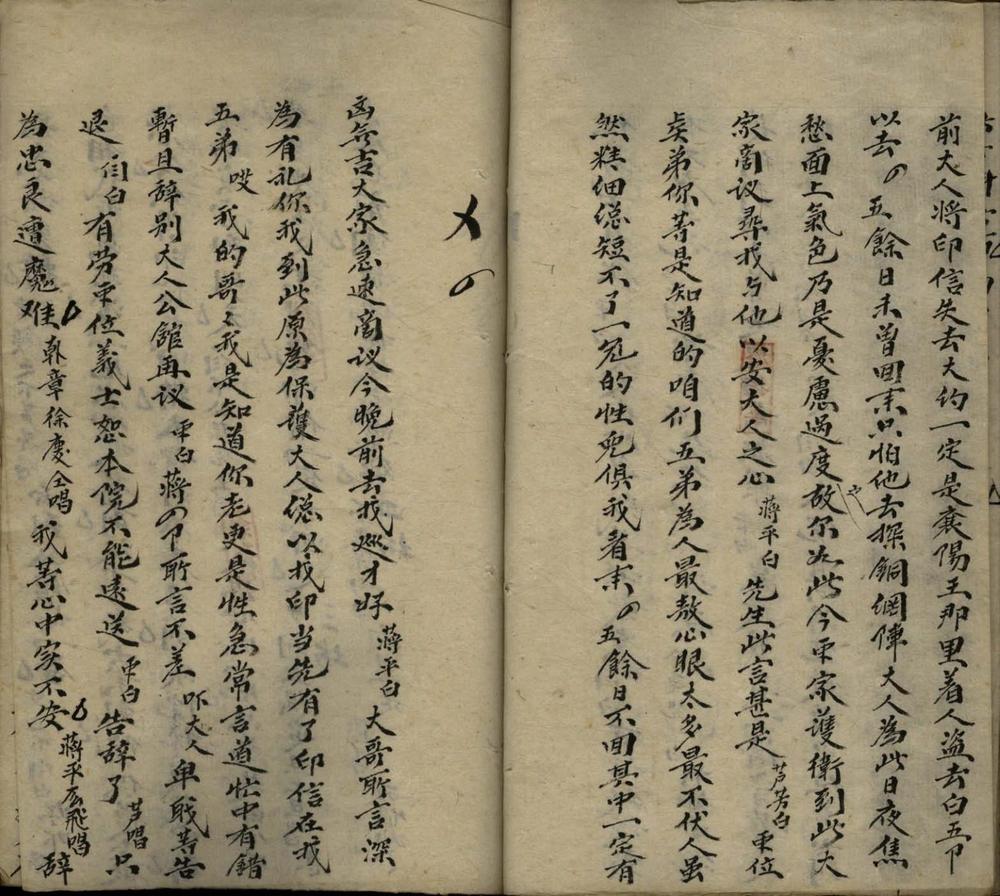 前大人將印信失去大约一定是襄陽王那里着人盗去白五卩
以去の五餘日未曽回来只怕他去探銅網陣大人為此日夜焦
愁面上氣色乃是憂慮過度故尔如此今衆家護衛到此大
家啇议尋找与他以安大人之心 蒋平白 先生此言甚是 芦芳白 衆位
矣弟你等是知道的咱们五弟為人最敖心眼太多最不伏人虽
然精细緦短不了一冠的性皃俱我看来の五餘日不回其中一定有
乂の
凶無吉大家急速啇议今晚前去找巡才好 蒋平白 大哥所言深
為有礼你我到此原為保護大人緦以找印当先有了印信在找
五弟 哎 我的哥々我是知道你老更是性急常言道忙中有錯
暫且辞别大人公舘再议 衆白 蒋の卩所言不差 吓大人 卑戝等告
退 闫白 有劳衆位義士恕本院不能逺送 衆白 告辞了 芦唱 只
為忠良遭魔难 韩章徐慶仝唱 我等心中实不安 蒋平 飛唱 辞